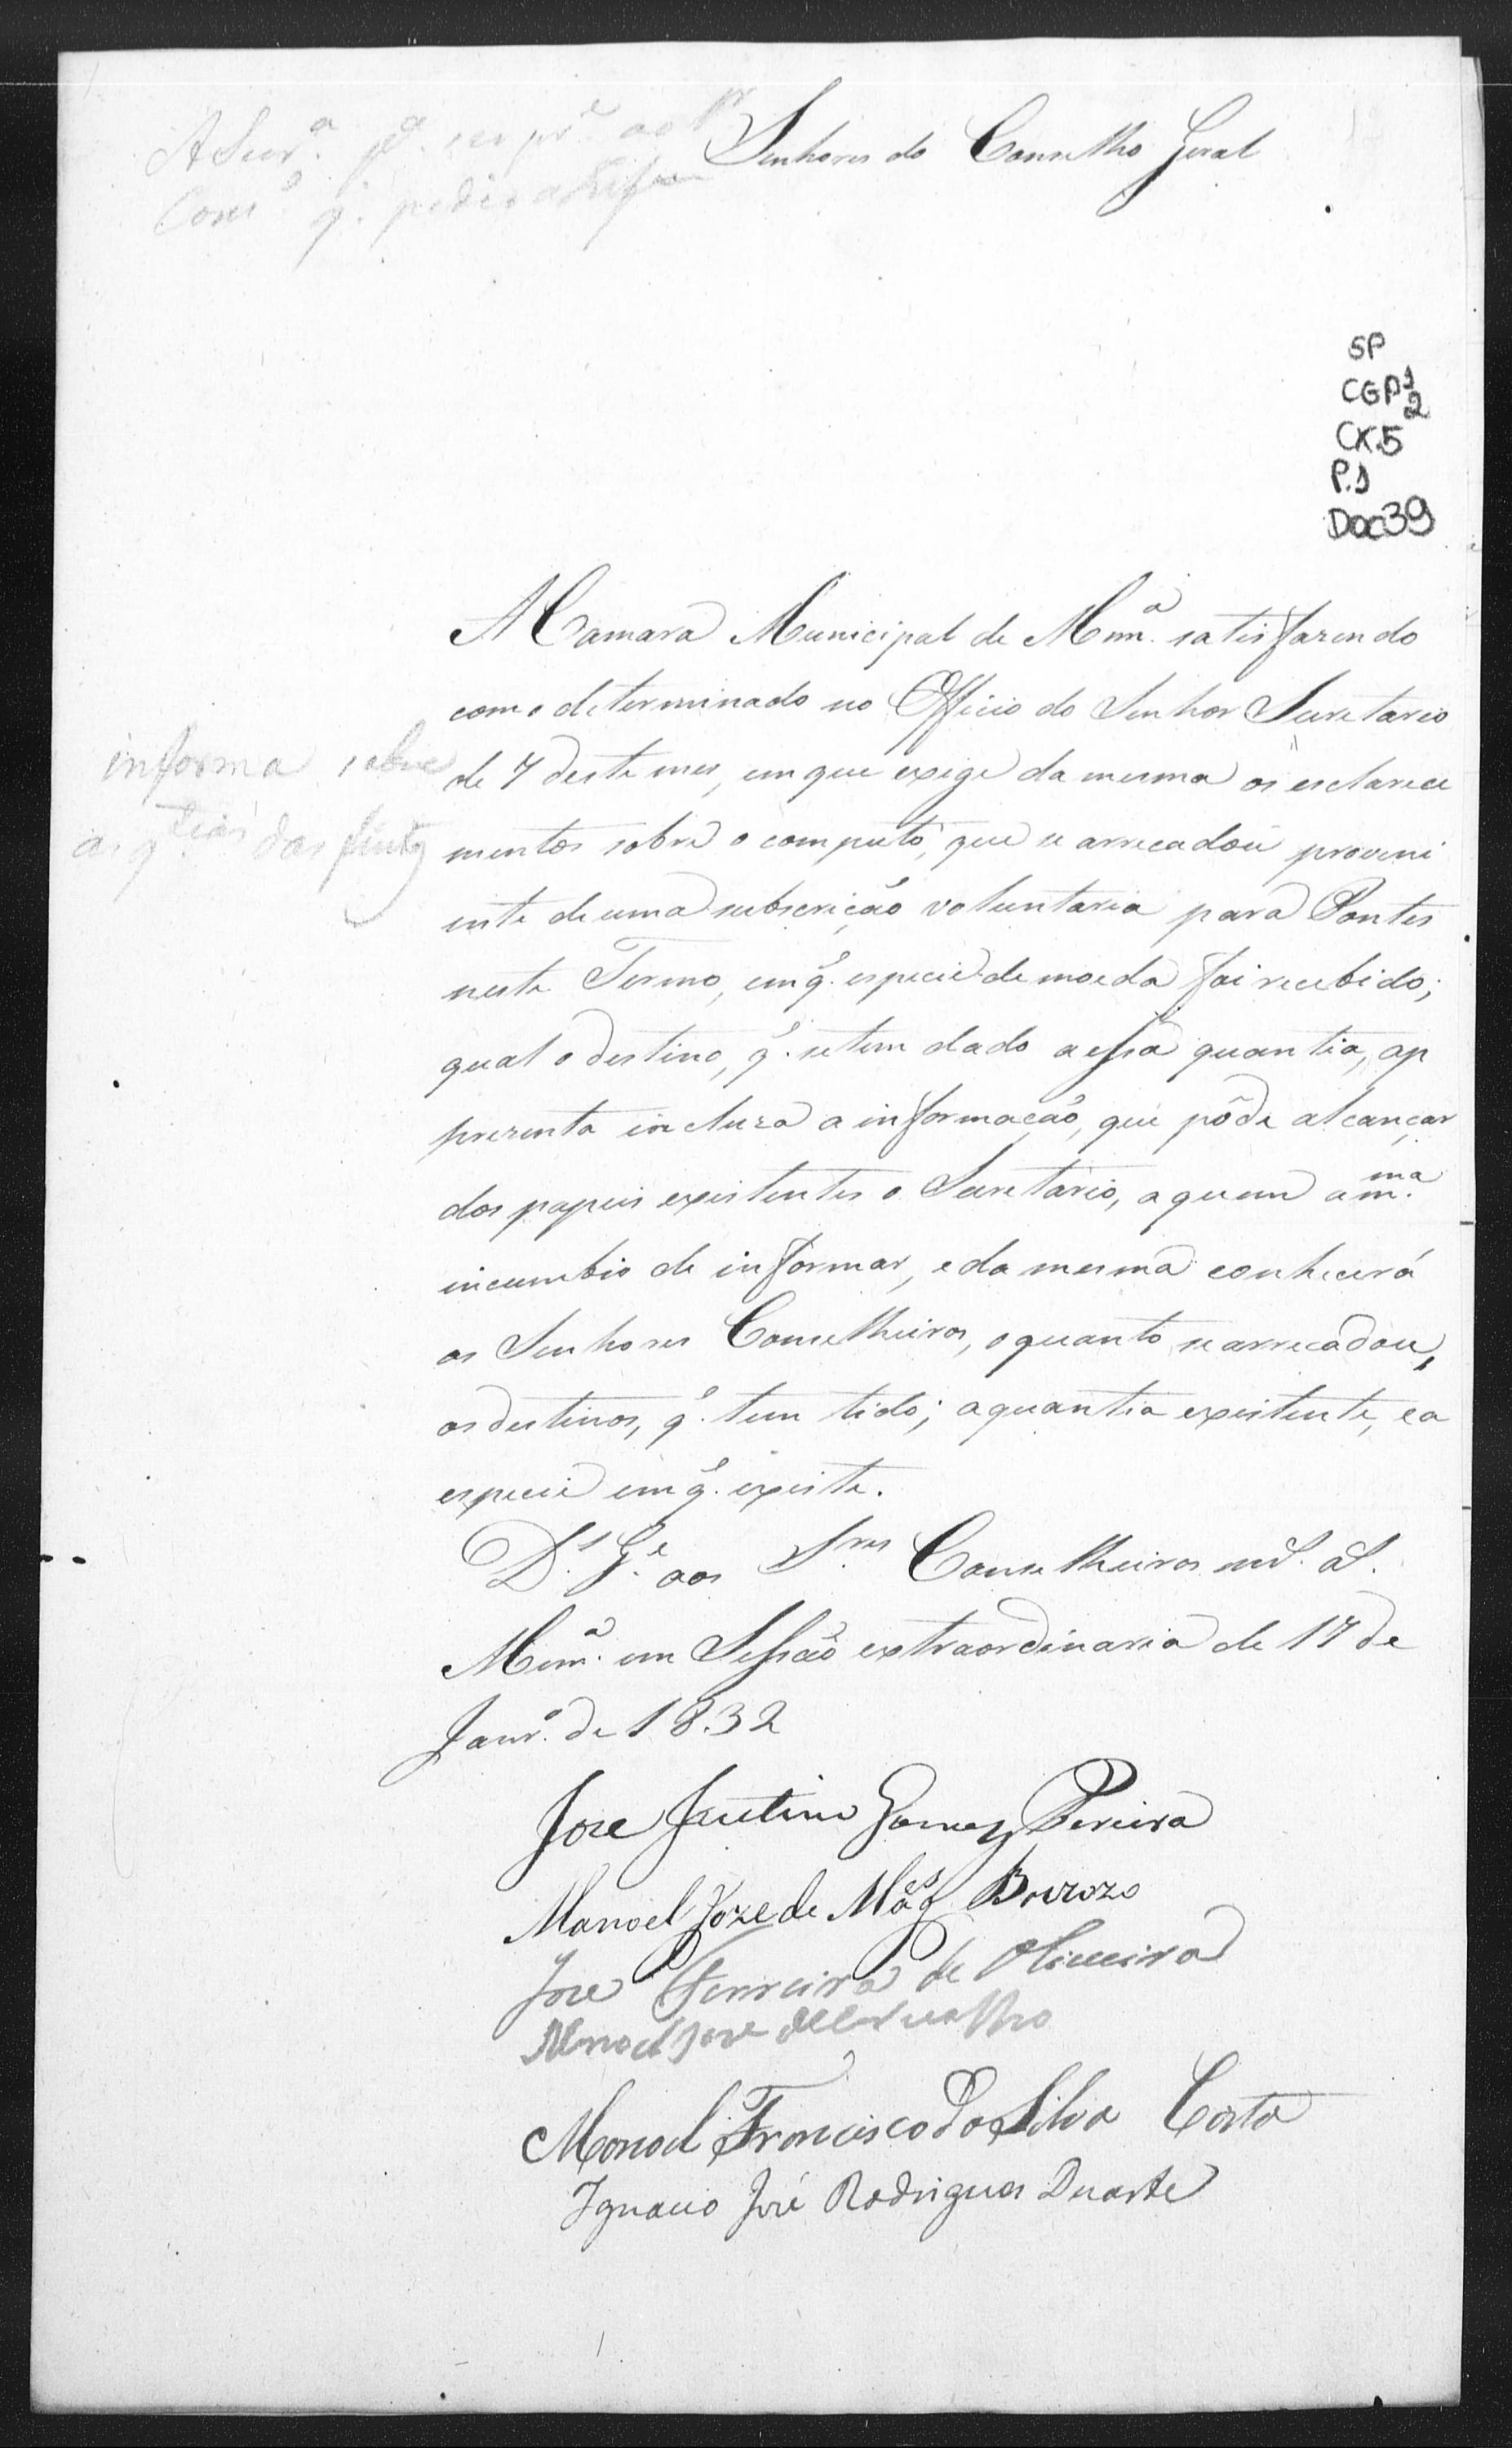 A Secr.ª p.ª ser pr.e ao
Com.º q. pedio a
Senhores do Conselho Geral
SP
CGP1
2
CX.5
P.1
Doc39
A Camara Municipal de Mnn.ª satisfazendo
com o determinado no Officio do Senhor Secretario
de 7 deste mes, em que exige da mesma os esclareci
informa sobre
as q.tias das fintas
mentos sobre o computo, que se arrecadou proveni
ente de uma subscrição voluntaria para Pontes
neste Termo, em q.e especie de moeda foi recebido;
qual o destino, q.e se tem dado a essa quantia, ap
prezenta incluza a informação, que pôde alcançar
dos papeis existentes o Secretario, a quem a m.ma
incumbio de informar, e da mesma conhecerá
os Senhores Conselheiros, o quanto se arrecadou,
os destinos, q.e tem tido; a quantia existente, e a
especie em q.e existe.
D.s G.e aos S.res Conselheiros m.s a.s
Mnn.ª em Sessão extraordinaria de 17 de
Janr.º de 1832
Jose Justino Gomes Pereira
Manoel Joze de Mag.es Barrozo
Jose Ferreira de Oliveira
Manoel Jose de
Manoel Francisco da Silva Costa
Ignacio José Rodrigues Duarte